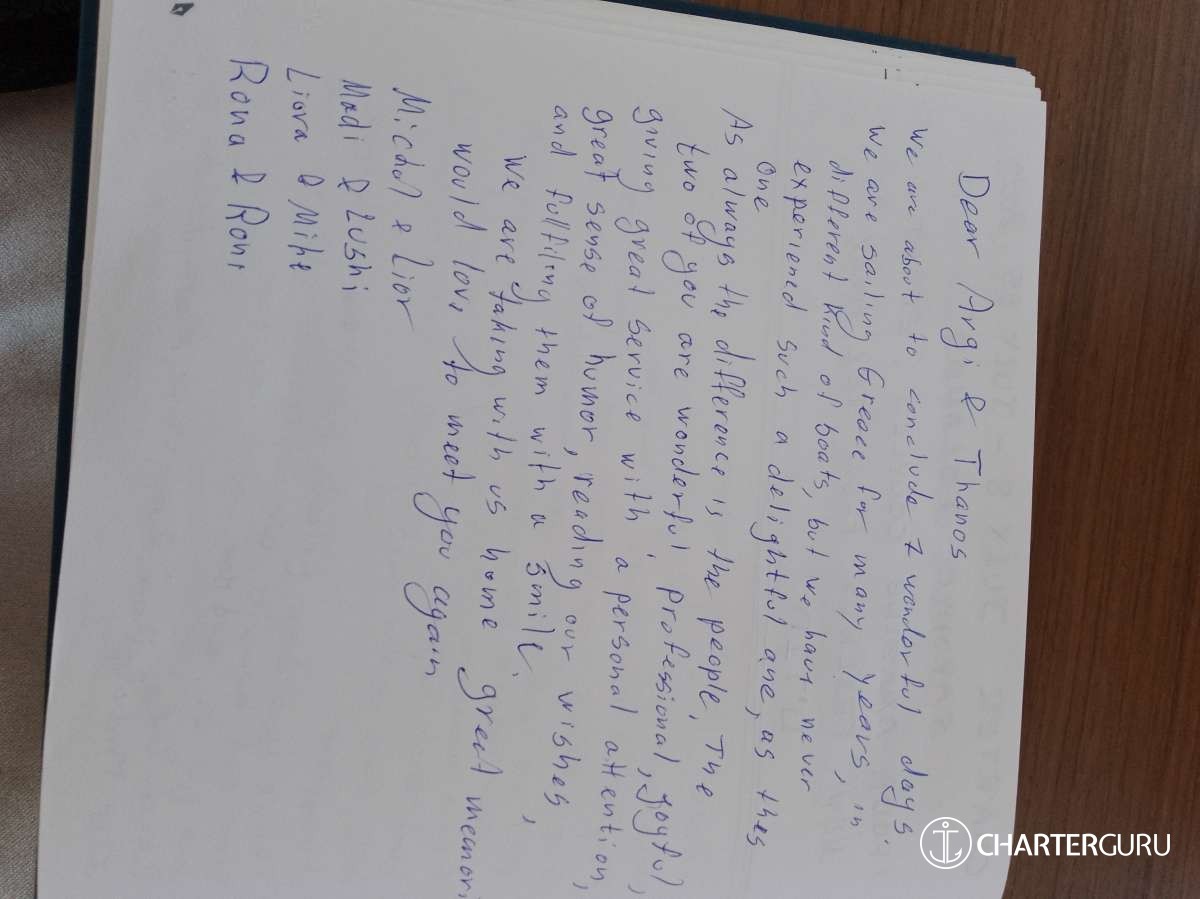 Dear Argi & Thanos
We are about to conclude 7 wonderful days.
We are sailing Greece for many years, in
different kind of boats, but we have never
experiened such a delightful one, as thes
one
As always the difference is the people. The
two of you are wonderful, professional, joyful,
giving great service with a personal attention,
great sense of humor, reading our wishes,
and fulfiling them with a smile.
We are taking with us home great memori
would love to meet you again
Michal & Lior
Madi & Zushi
Liora & Mike
Rona & Roni
CHARTERGURU